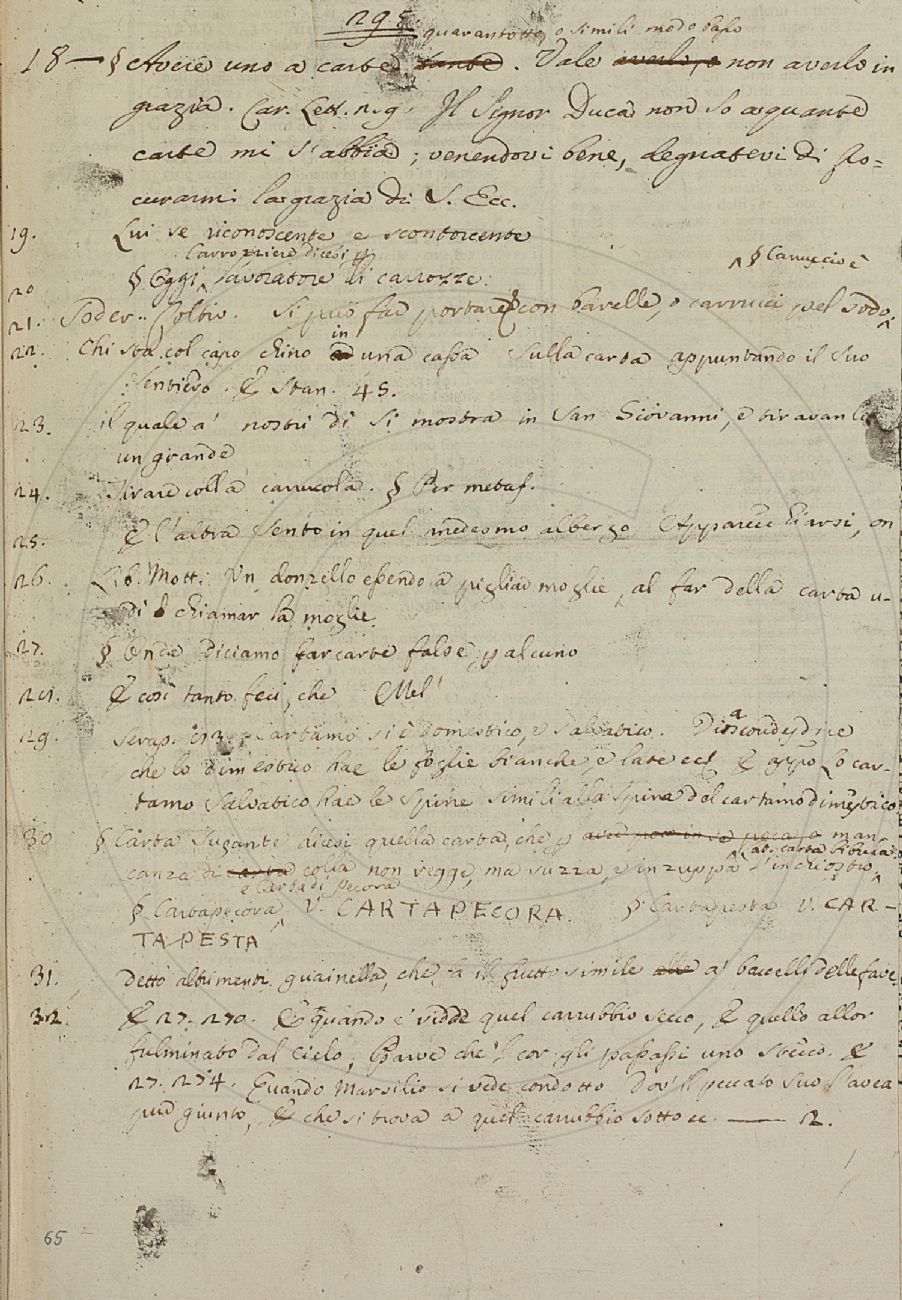 295.
quarantotto, o simili modo basso
18 — § Avere uno a carte tante. Vale averlo, o non averlo in
grazia. Car. Lett. n. 9. Il Signor Duca non so a quante
carte mi s'abbia; venendovi bene, degnatevi di pro=
curarmi la grazia di S. Ecc.
19. Lui se riconoscente e scontorcente
Carrozziere dicesi
20 § Oggi lavoratore di carrozze.
§ Carruccio è
21. Soder. Coltiv. Si può far portare con barelle, o carrucci pel sodo,
22. Chi sta col capo chino in una cassa Sulla carta appuntando il suo
sentiero. E Stan. 45.
23. il quale a' nostri dì si mostra in San Giovanni, e tiravanlo
un grande
24. Tirare colla carrucola. § Per metaf.
25. E l'altra sento in quel medesmo albergo Apparecchiarsi, on
26. Lib. Mott. Un donzello essendo a pigliar moglie, al far della carta u-
dì chiamar la moglie.
27. § Onde diciamo far carte false p alcuno
28. E così tanto feci, che Mel'
29. Serap. 213. Cartamo si è domestico, e salvatico. Dioscoride dice
che lo dimestico hae le foglie bianche, e late ec. E appo Lo car-
tamo salvatico hae le spine simili alla spina del cartamo dimestico
30 § Carta Sugante dicesi quella carta, che p man
canza di colla non regge, ma succia, e inzuppa l'inchiostro,
lat. carta bibula
e Carta di pecora
§ Cartapecora V. CARTAPECORA. § Cartapesta V. CAR-
TAPESTA
31. Detto altrimenti guainella, che fa il frutto simile alle a' baccelli delle fave.
32. E 27. 270. E quando e' vidde quel carrubbio secco, E quello allor
fulminato dal Cielo, Parve che 'l cor gli passassi uno stecco. E
27. 274. Quando Marsilio si vede condotto Dov' il peccato suo l'avea
pur giunto, E che si trova a quel carrubbio sotto ec. — 2.
65